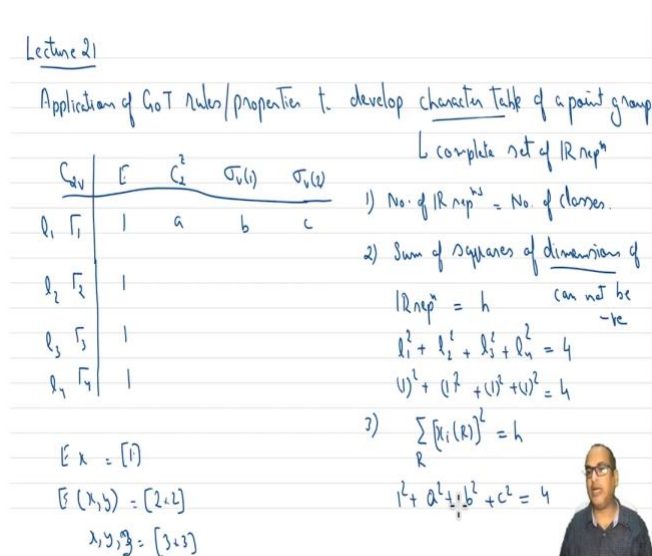 Lecture 21
Application of GOT rules/properties to develop character Table of a point group
↳ complete set of IR repⁿ
C₂ᵥ E C₂² σᵥ(1) σᵥ(2)
l₁ Γ₁ 1 a b c
l₂ Γ₂ 1
l₃ Γ₃ 1
l₄ Γ₄ 1
E x = [1]
E (x,y) = [2×2]
x,y,z = [3×3]
1) No. of IR repⁿˢ = No. of classes.
2) Sum of squares of dimensions of
IR repⁿ = h can not be
-ve
l₁² + l₂² + l₃² + l₄² = 4
(1)² + (1)² + (1)² + (1)² = 4
3) Σ [χᵢ(R)]² = h
R
1² + a² + b² + c² = 4